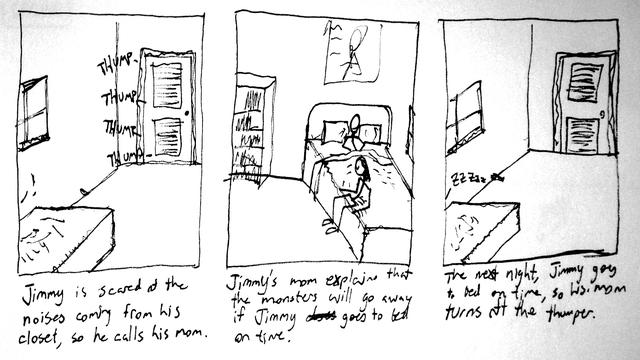 THUMP
THUMP
THUMP
THUMP
Jimmy is scared of the
noises coming from his
closet, so he calls his mom.
Jimmy's mom explains that
the monsters will go away
if Jimmy goes to bed
on time.
ZZZzz
The next night, Jimmy goes
to bed on time, so his mom
turns off the thumper.